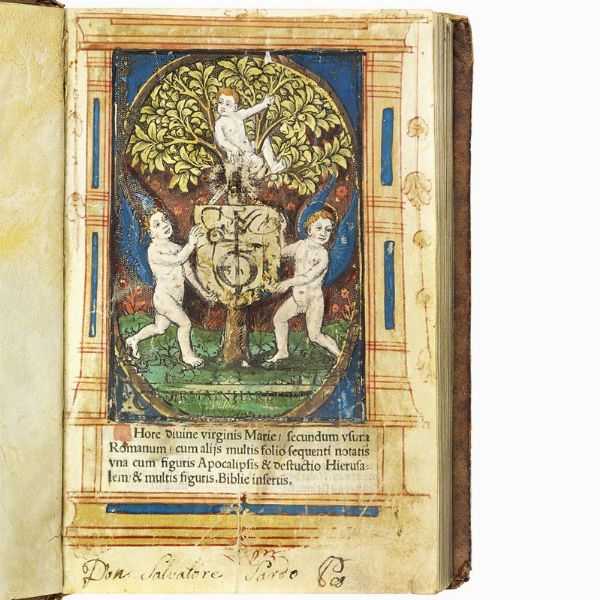 Hore diuine virginis Marie/ secundum vsum
Romanum/ cum alijs multis folio sequenti notatis
vna cum figuris Apocalipsis & destuctio Hierusa-
lem/ & multis figuris. Biblie insertis.
Don Salvatore Pardo